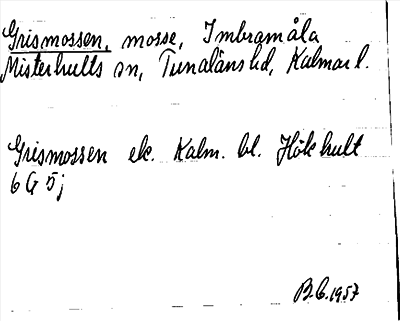 Grismossen, mosse, Imbramåla
Misterhults sn, Tunaläns hd, Kalmar l.
Grismossen ek. Kalm. bl. Hökhult
6 G 5 j
B.C. 1957